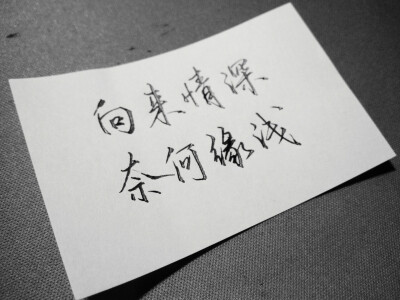 向来情深
奈何缘浅